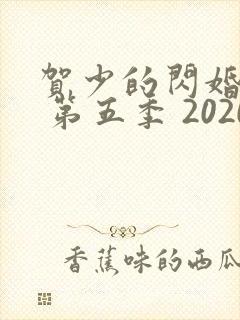 賀少的閃婚
第五季 2020
香蕉味的西瓜